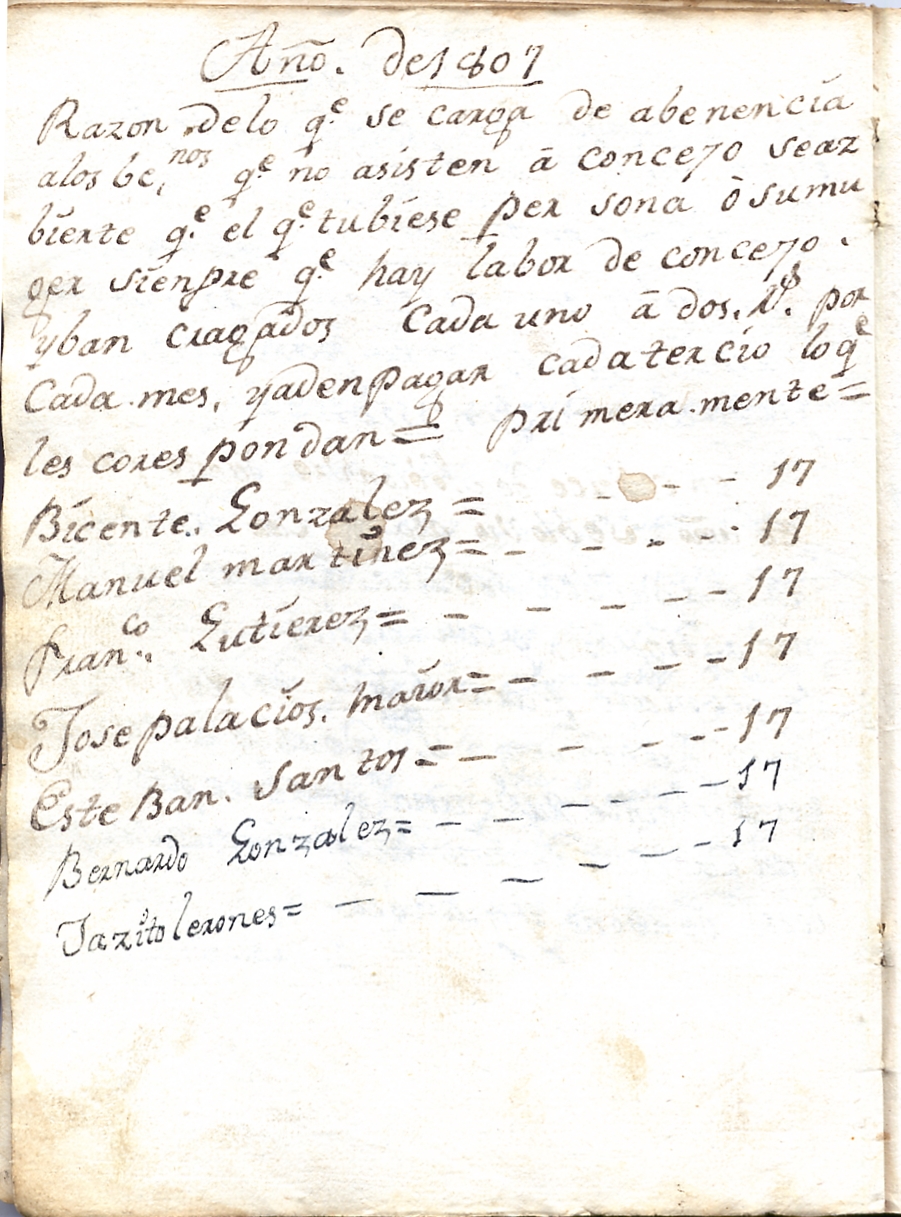 Año. de 1807
Razon de lo q.e se carga de abenencia
alos be,nos q.e no asisten â concejo seaz
bierte q.e el q.e tubiese per sona ò sumu
ger sienpre q.e hay labor de concejo.
yban cragados Cada uno â dos. R.s por
Cada mes, yadenpagar cada tercio loq.e
les cores pondan = pri mera.mente =
Bicente. Gonzalez = - - - 17
Manuel martinez = - - - - 17
fran.co Gutierez = - - - - - 17
Jose palacios. maior = - - - - 17
Este Ban. Santos = - - - - - 17
Bernardo Gonzalez = - - - - - - 17
Tazito lerones = - - - - - - 17